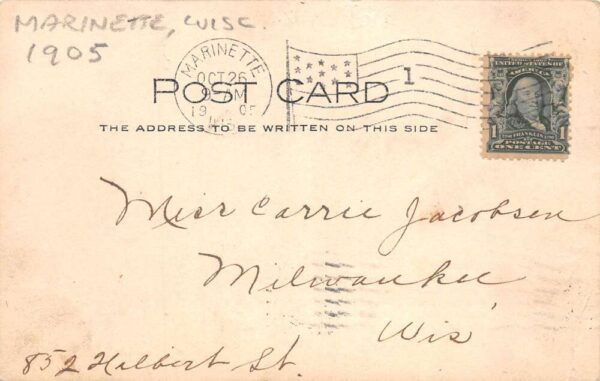 MARINETTE, WISC.
1905
MARINETTE
OCT 26
9 AM
1905
WIS.
1
POST CARD
THE ADDRESS TO BE WRITTEN ON THIS SIDE
UNITED STATES OF AMERICA
FRANKLIN
1 1
POSTAGE
ONE CENT
Miss Carrie Jacobsen
Milwaukee
Wis
852 Halbert St.